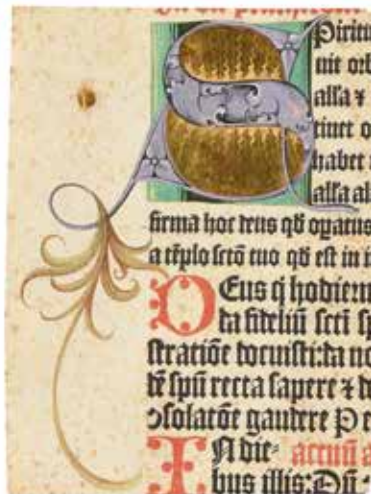 Spiritu
uit orb
alla ⁊
tinet o
habet
alla al
firma hoc deus qd̄ opatus
a tēplo scō tuo qd̄ est in i
DEus q̇ hodiern
da fideliū scti sp
stratiōe docuisti: da no
dē spū recta sapere ⁊ d
ↄsolatōe gaudere P e
IN die- actuū a
bus illis: Dū